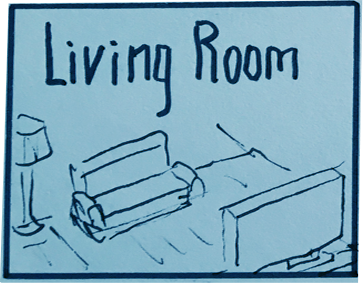 Living Room